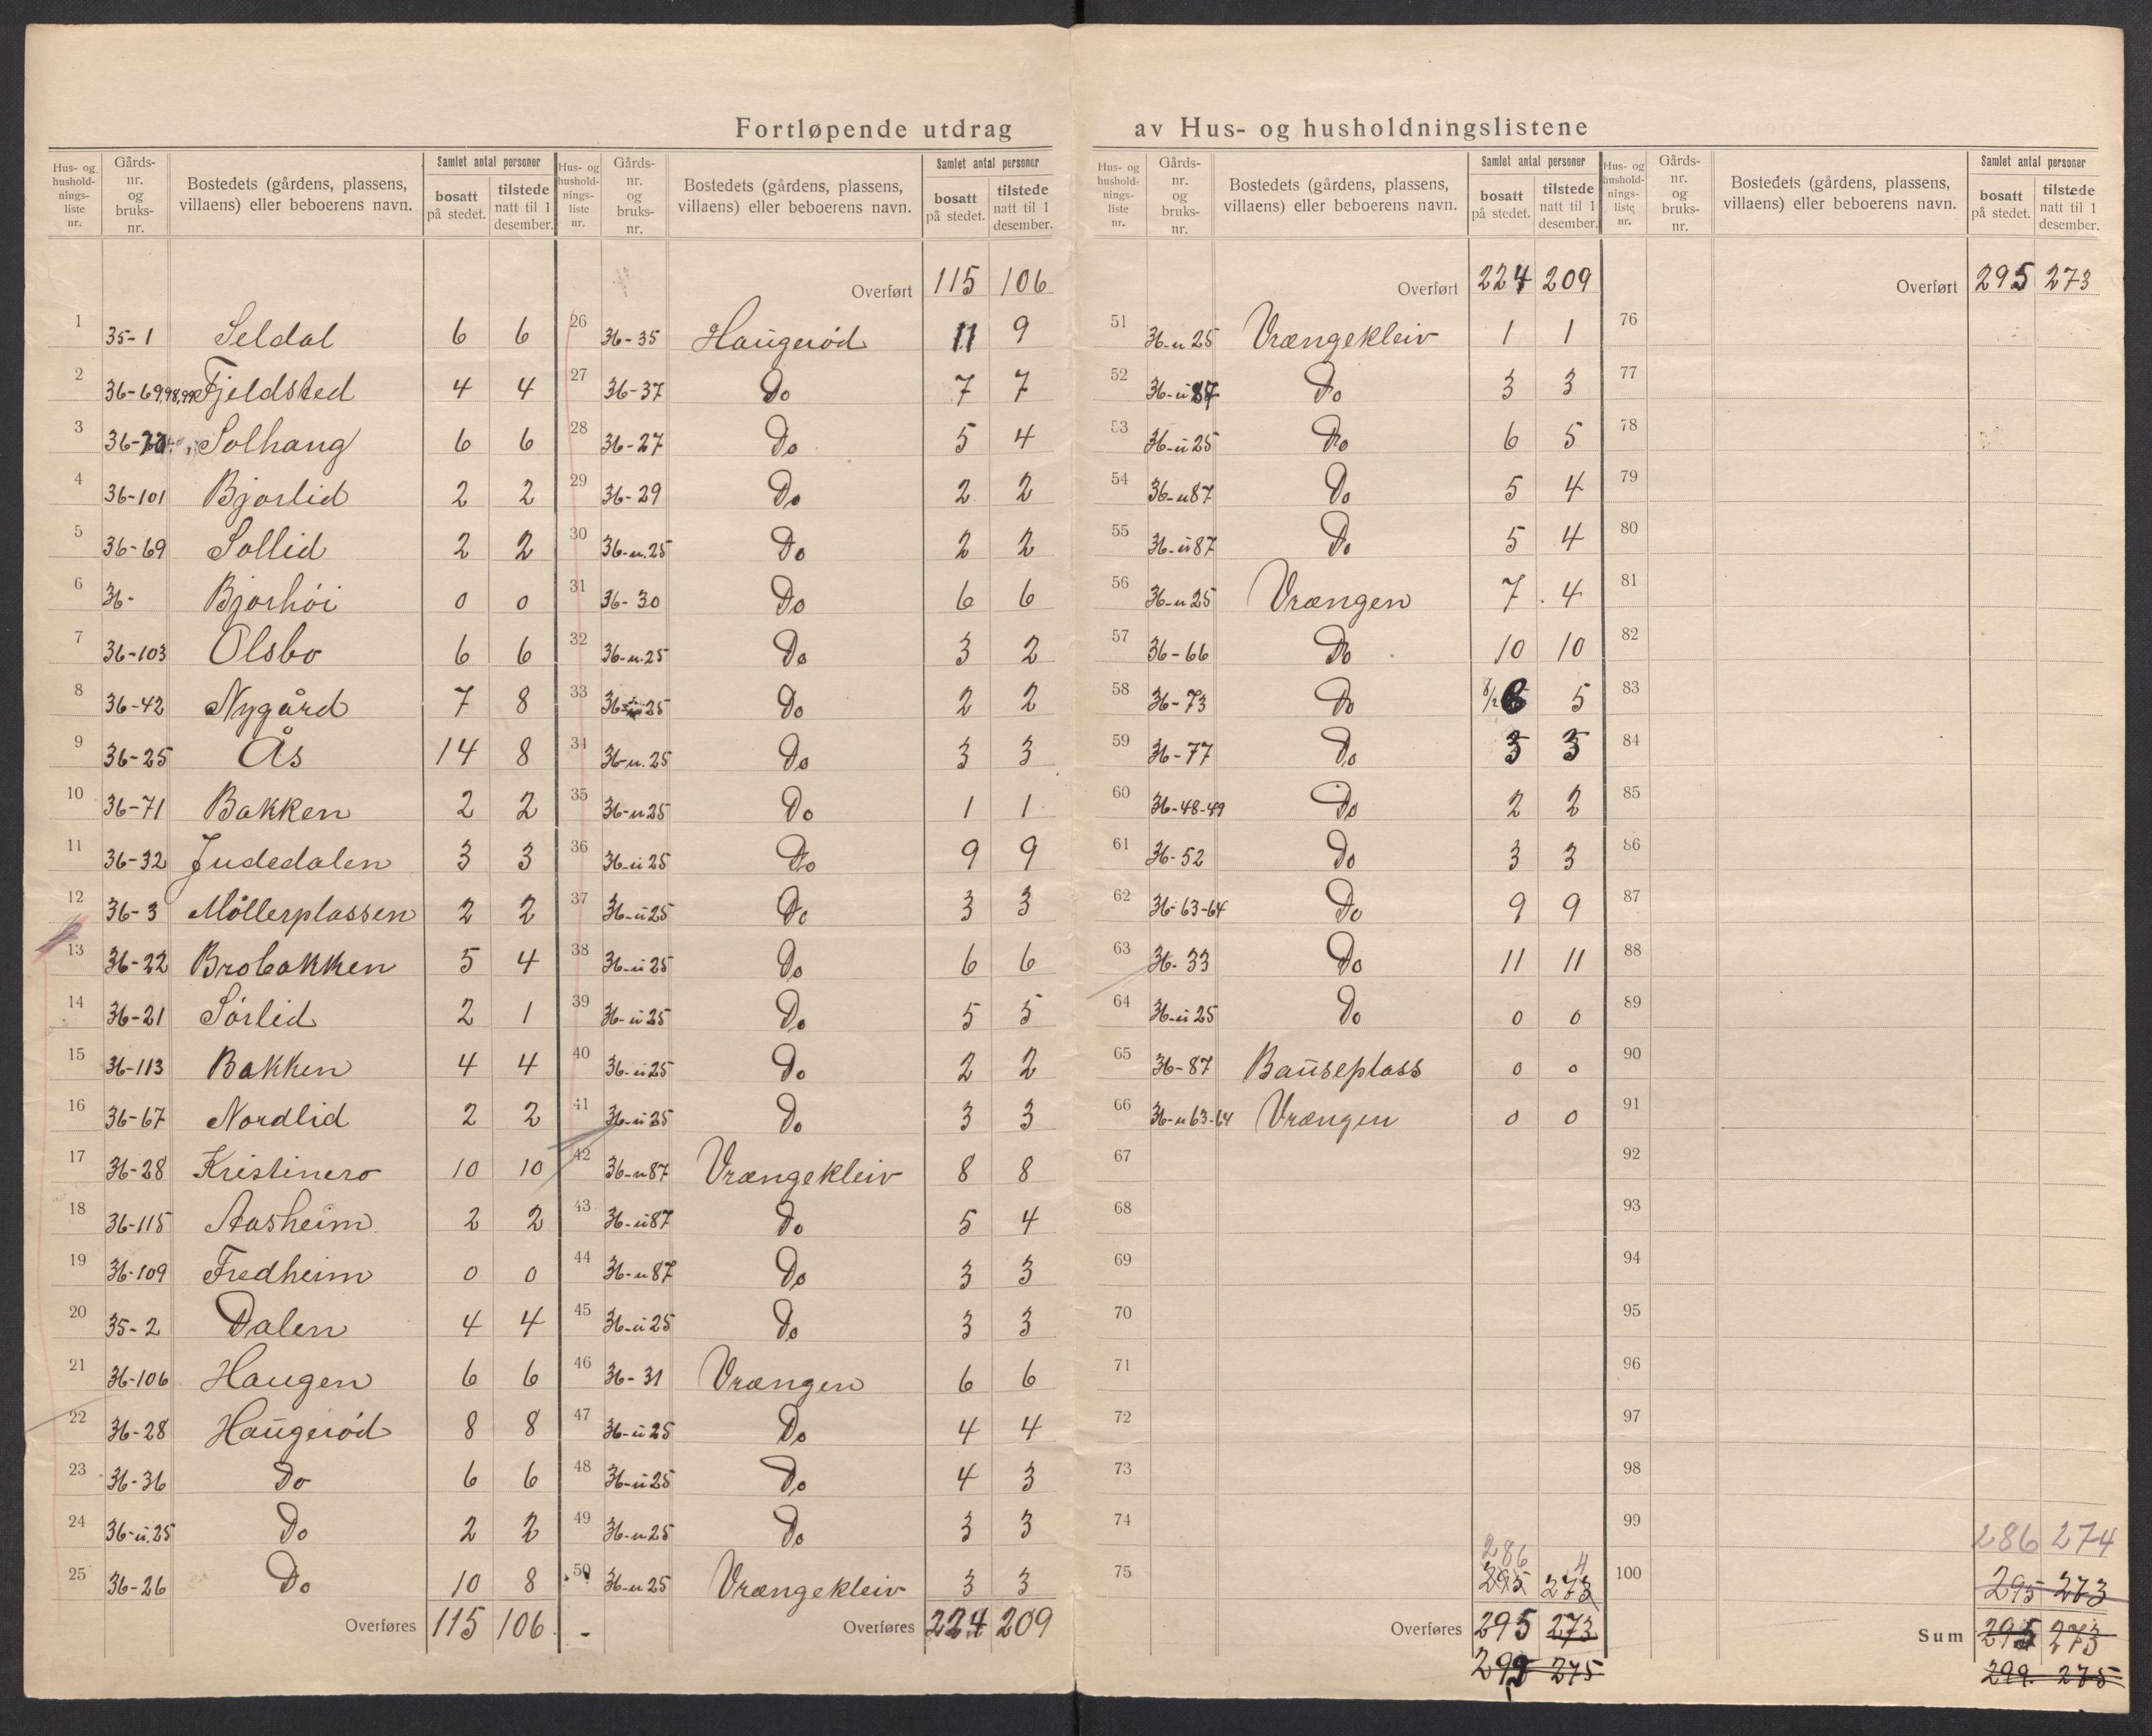 Fortløpende utdrag av Hus- og husholdningslistene
Hus- og hushold-nings-liste nr. Gårds-nr. og bruks-nr. Bostedets (gårdens, plassens, villaens) eller beboerens navn. Samlet antal personer bosatt på stedet. tilstede natt til 1 desember.
1 35-1 Seldal 6 6
2 36-69,98,99 Fjeldsted 4 4
3 Solhaug 6 6
4 36-101 Bjørlid 2 2
5 36-69 Sollid 2 2
6 36- Bjørhöi 0 0
7 36-103 Olsbo 6 6
8 36-42 Nygård 7 8
9 36-25 Ås 14 8
10 36-71 Bakken 2 2
11 36-32 Judedalen 3 3
12 36-3 Möllerplassen 2 2
13 36-22 Brobakken 5 4
14 36-21 Sörlid 2 1
15 36-113 Bakken 4 4
16 36-67 Nordlid 2 2
17 36-28 Kristinero 10 10
18 36-115 Aasheim 2 2
19 36-109 Fredheim 0 0
20 35-2 Dalen 4 4
21 36-106 Haugen 6 6
22 36-28 Haugeröd 8 8
23 36-36 Do 6 6
24 36-u.25 Do 2 2
25 36-26 Do 10 8
Overføres 115 106
Hus- og hushold-nings-liste nr. Gårds-nr. og bruks-nr. Bostedets (gårdens, plassens, villaens) eller beboerens navn. Samlet antal personer bosatt på stedet. tilstede natt til 1 desember.
Overført 115 106
26 36-35 Haugeröd 11 9
27 36-37 Do 7 7
28 36-27 Do 5 4
29 36-29 Do 2 2
30 36-u.25 Do 2 2
31 36-30 Do 6 6
32 36-u.25 Do 3 2
33 36-u25 Do 2 2
34 36-u.25 Do 3 3
35 36-u25 Do 1 1
36 36-u25 Do 9 9
37 36-u25 Do 3 3
38 36-u25 Do 6 6
39 36-u25 Do 5 5
40 36-u25 Do 2 2
41 36-u25 Do 3 3
42 36-u87 Vrængekleiv 8 8
43 36-u87 Do 5 4
44 36-u87 Do 3 3
45 36-u25 Do 3 3
46 36-31 Vrængen 6 6
47 36-u25 Do 4 4
48 36-u25 Do 4 3
49 36-u25 Do 3 3
50 36-u25 Vrængekleiv 3 3
Overføres 224 209
Hus- og hushold-nings-liste nr. Gårds-nr. og bruks-nr. Bostedets (gårdens, plassens, villaens) eller beboerens navn. Samlet antal personer bosatt på stedet. tilstede natt til 1 desember.
Overført 224 209
51 36-u25 Vrængekleiv 1 1
52 36-u87 Do 3 3
53 36-u25 Do 6 5
54 36-u87 Do 5 4
55 36-u87 Do 5 4
56 36-u25 Vrængen 7 4
57 36-66 Do 10 10
58 36-73 Do 6 5
59 36-77 Do 3 3
60 36-48-49 Do 2 2
61 36-52 Do 3 3
62 36-63-64 Do 9 9
63 36-33 Do 11 11
64 36-u25 Do 0 0
65 36-87 Bauseplass 0 0
66 36-u63-64 Vrængen 0 0
67
68
69
70
71
72
73
74
286 4
75 295 273
Overføres 295 273
295 275
Hus- og hushold-nings-liste nr. Gårds-nr. og bruks-nr. Bostedets (gårdens, plassens, villaens) eller beboerens navn. Samlet antal personer bosatt på stedet. tilstede natt til 1 desember.
Overført 295 273
76
77
78
79
80
81
82
83
84
85
86
87
88
89
90
91
92
93
94
95
96
97
98
99 286 274
100 295 273
Sum 295 273
299 275